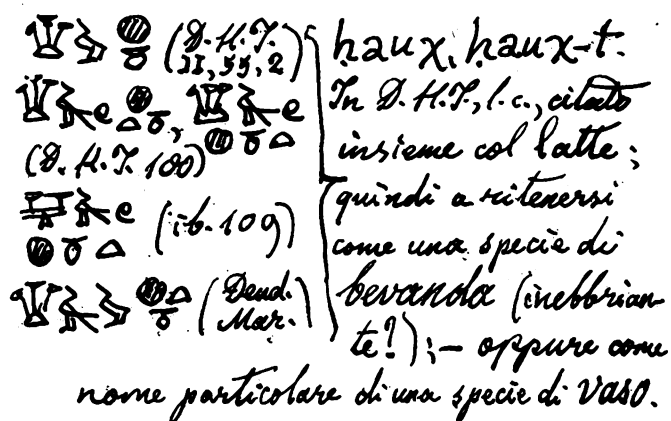 (D. H. I. II, 55, 2)
(D. H. I. 100)
(ib. 109)
(Dend. Mar.)
haux, haux-t.
In D. H. I., l. c., citato
insieme col latte;
quindi a ritenersi
come una specie di
bevanda (inebbrian-
te?); — oppure come
nome particolare di una specie di vaso.